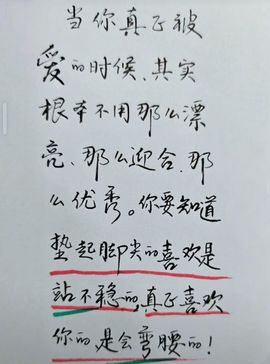 当你真正被
爱的时候、其实
根本不用那么漂
亮、那么迎合、那
么优秀。你要知道
垫起脚尖的喜欢是
站不稳的,真正喜欢
你的,是会弯腰的!